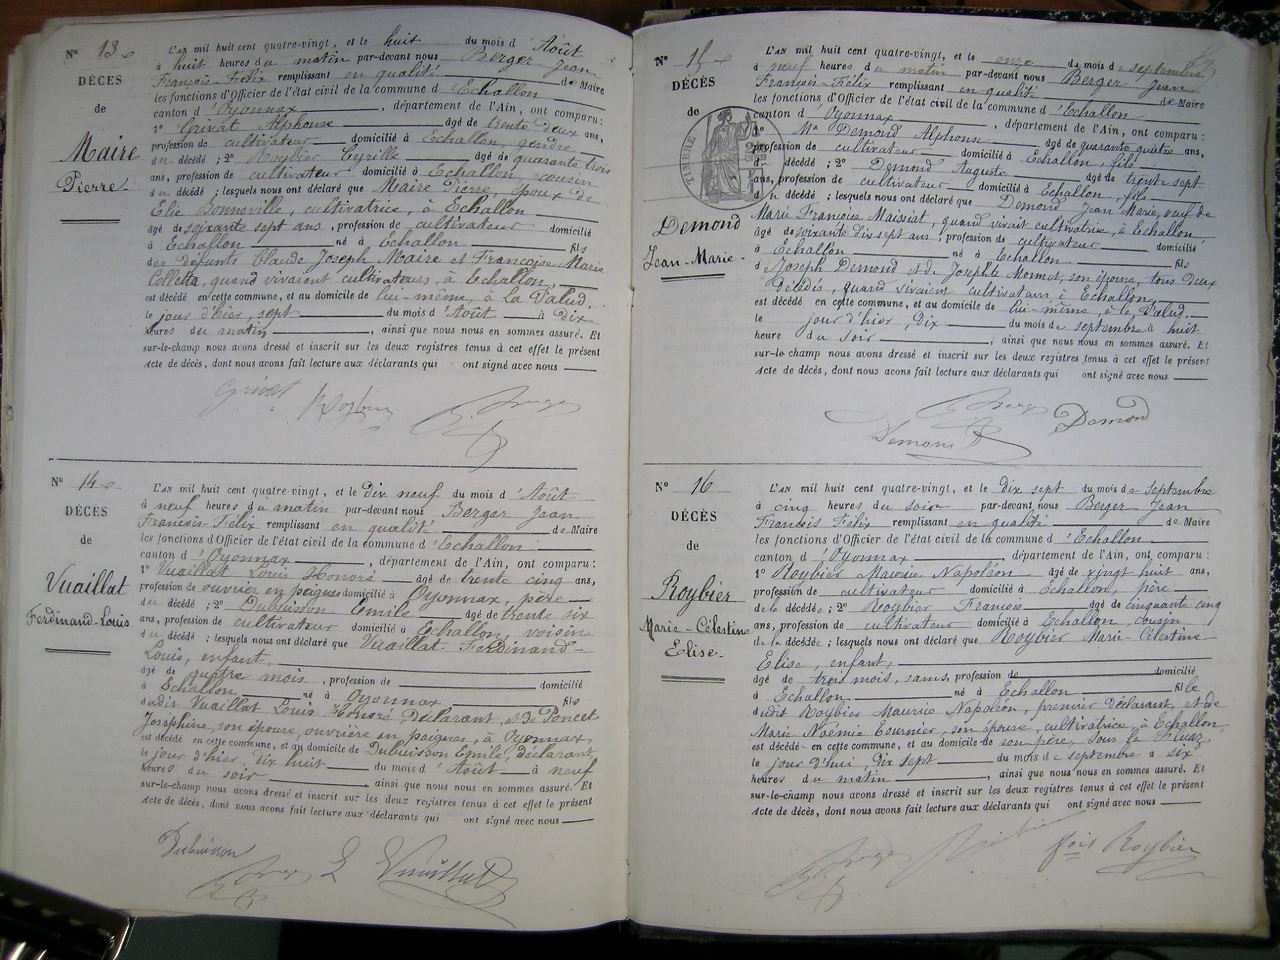 N° 13
DÉCÈS
de
Maire
Pierre
L'AN mil huit cent quatre-vingt, et le huit du mois d'Août
à huit heures du matin par-devant nous Berger Jean
François-Félix remplissant en qualité de Maire
les fonctions d'Officier de l'état civil de la commune d'Echallon
canton d'Oyonnax, département de l'Ain, ont comparu:
1° Grivat Alphonse âgé de trente deux ans,
profession de cultivateur domicilié à Echallon, gendre
du décédé; 2° Roybier Cyrille âgé de quarante trois
ans, profession de cultivateur domicilié à Echallon, cousin
du décédé; lesquels nous ont déclaré que Maire Pierre, époux de
Elie Bonneville, cultivatrice, à Echallon
âgé de soixante sept ans, profession de cultivateur domicilié
à Echallon né à Echallon fils
des défunts Claude Joseph Maire et Françoise Marie
Colletta, quand vivaient cultivateurs, à Echallon,
est décédé en cette commune, et au domicile de lui-même, à la Palud.
le jour d'hier, sept du mois d'Août à dix
heures du matin, ainsi que nous nous en sommes assuré. Et
sur-le-champ nous avons dressé et inscrit sur les deux registres tenus à cet effet le présent
acte de décès, dont nous avons fait lecture aux déclarants qui ont signé avec nous
N° 14
DÉCÈS
de
Vuaillat
Ferdinand-Louis
L'AN mil huit cent quatre-vingt, et le dix neuf du mois d'Août
à neuf heures du matin par-devant nous Berger Jean
François-Félix remplissant en qualité de Maire
les fonctions d'Officier de l'état civil de la commune d'Echallon
canton d'Oyonnax, département de l'Ain, ont comparu:
1° Vuaillat Louis Honoré âgé de trente cinq ans,
profession de ouvrier en peignes domicilié à Oyonnax, père
du décédé; 2° Dubuisson Emile âgé de trente six
ans, profession de cultivateur domicilié à Echallon, voisin
du décédé; lesquels nous ont déclaré que Vuaillat Ferdinand-
Louis, enfant,
âgé de quatre mois, profession de domicilié
à Echallon né à Oyonnax fils
dudit Vuaillat Louis Honoré déclarant, et de Poncet
Joséphine, son épouse, ouvrière en peignes, à Oyonnax,
est décédé en cette commune, et au domicile de Dubuisson Emile, déclarant
le jour d'hier, dix huit du mois d'Août à neuf
heures du soir, ainsi que nous nous en sommes assuré. Et
sur-le-champ nous avons dressé et inscrit sur les deux registres tenus à cet effet le présent
acte de décès, dont nous avons fait lecture aux déclarants qui ont signé avec nous
Dubuisson
L Vuaillat
N° 15
DÉCÈS
de
TIMBRE
Demond
Jean-Marie
L'AN mil huit cent quatre-vingt, et le onze du mois de septembre
à neuf heures du matin par-devant nous Berger Jean
François-Félix remplissant en qualité de Maire
les fonctions d'Officier de l'état civil de la commune d'Echallon
canton d'Oyonnax, département de l'Ain, ont comparu:
1° Demond Alphonse âgé de quarante quatre ans,
profession de cultivateur domicilié à Echallon, fils
décédé; 2° Demond Auguste âgé de trente sept
ans, profession de cultivateur domicilié à Echallon, fils
du décédé; lesquels nous ont déclaré que Demond Jean Marie, veuf de
Marie Françoise Maissiat, quand vivait cultivatrice, à Echallon
âgé de soixante dix sept ans, profession de cultivateur domicilié
à Echallon né à Echallon fils
d Joseph Demond et de Josephte Mermet, son épouse, tous deux
décédés, quand vivaient cultivateurs, à Echallon,
est décédé en cette commune, et au domicile de lui-même, à la Palud.
le jour d'hier, dix du mois de septembre à huit
heure du soir, ainsi que nous nous en sommes assuré. Et
sur-le-champ nous avons dressé et inscrit sur les deux registres tenus à cet effet le présent
acte de décès, dont nous avons fait lecture aux déclarants qui ont signé avec nous
Demond
Demond
N° 16
DÉCÈS
de
Roybier
Marie-Célestine
Elise
L'AN mil huit cent quatre-vingt, et le dix sept du mois de septembre
à cinq heures du soir par-devant nous Berger Jean
François Félix remplissant en qualité de Maire
les fonctions d'Officier de l'état civil de la commune d'Echallon
canton d'Oyonnax, département de l'Ain, ont comparu:
1° Roybier Maurice Napoléon âgé de vingt huit ans,
profession de cultivateur domicilié à Echallon, père
de la décédée; 2° Roybier François âgé de cinquante cinq
ans, profession de cultivateur domicilié à Echallon, cousin
de la décédée; lesquels nous ont déclaré que Roybier Marie-Célestine
Elise, enfant,
âgé de trois mois, sans profession de domicilié
à Echallon né à Echallon fille
dudit Roybier Maurice Napoléon, premier déclarant, et de
Marie Noémie Tournier, son épouse, cultivatrice, à Echallon
est décédé en cette commune, et au domicile de son père, sous le
le jour d'hui, dix sept du mois de septembre à six
heures du matin, ainsi que nous nous en sommes assuré. Et
sur-le-champ nous avons dressé et inscrit sur les deux registres tenus à cet effet le présent
acte de décès, dont nous avons fait lecture aux déclarants qui ont signé avec nous
fois Roybier